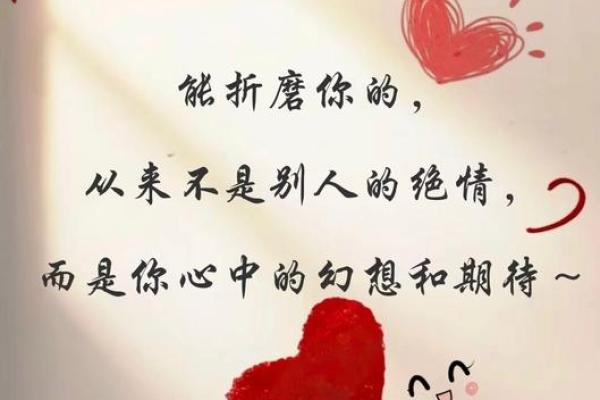 能折磨你的，
从来不是别人的绝情，
而是你心中的幻想和期待～